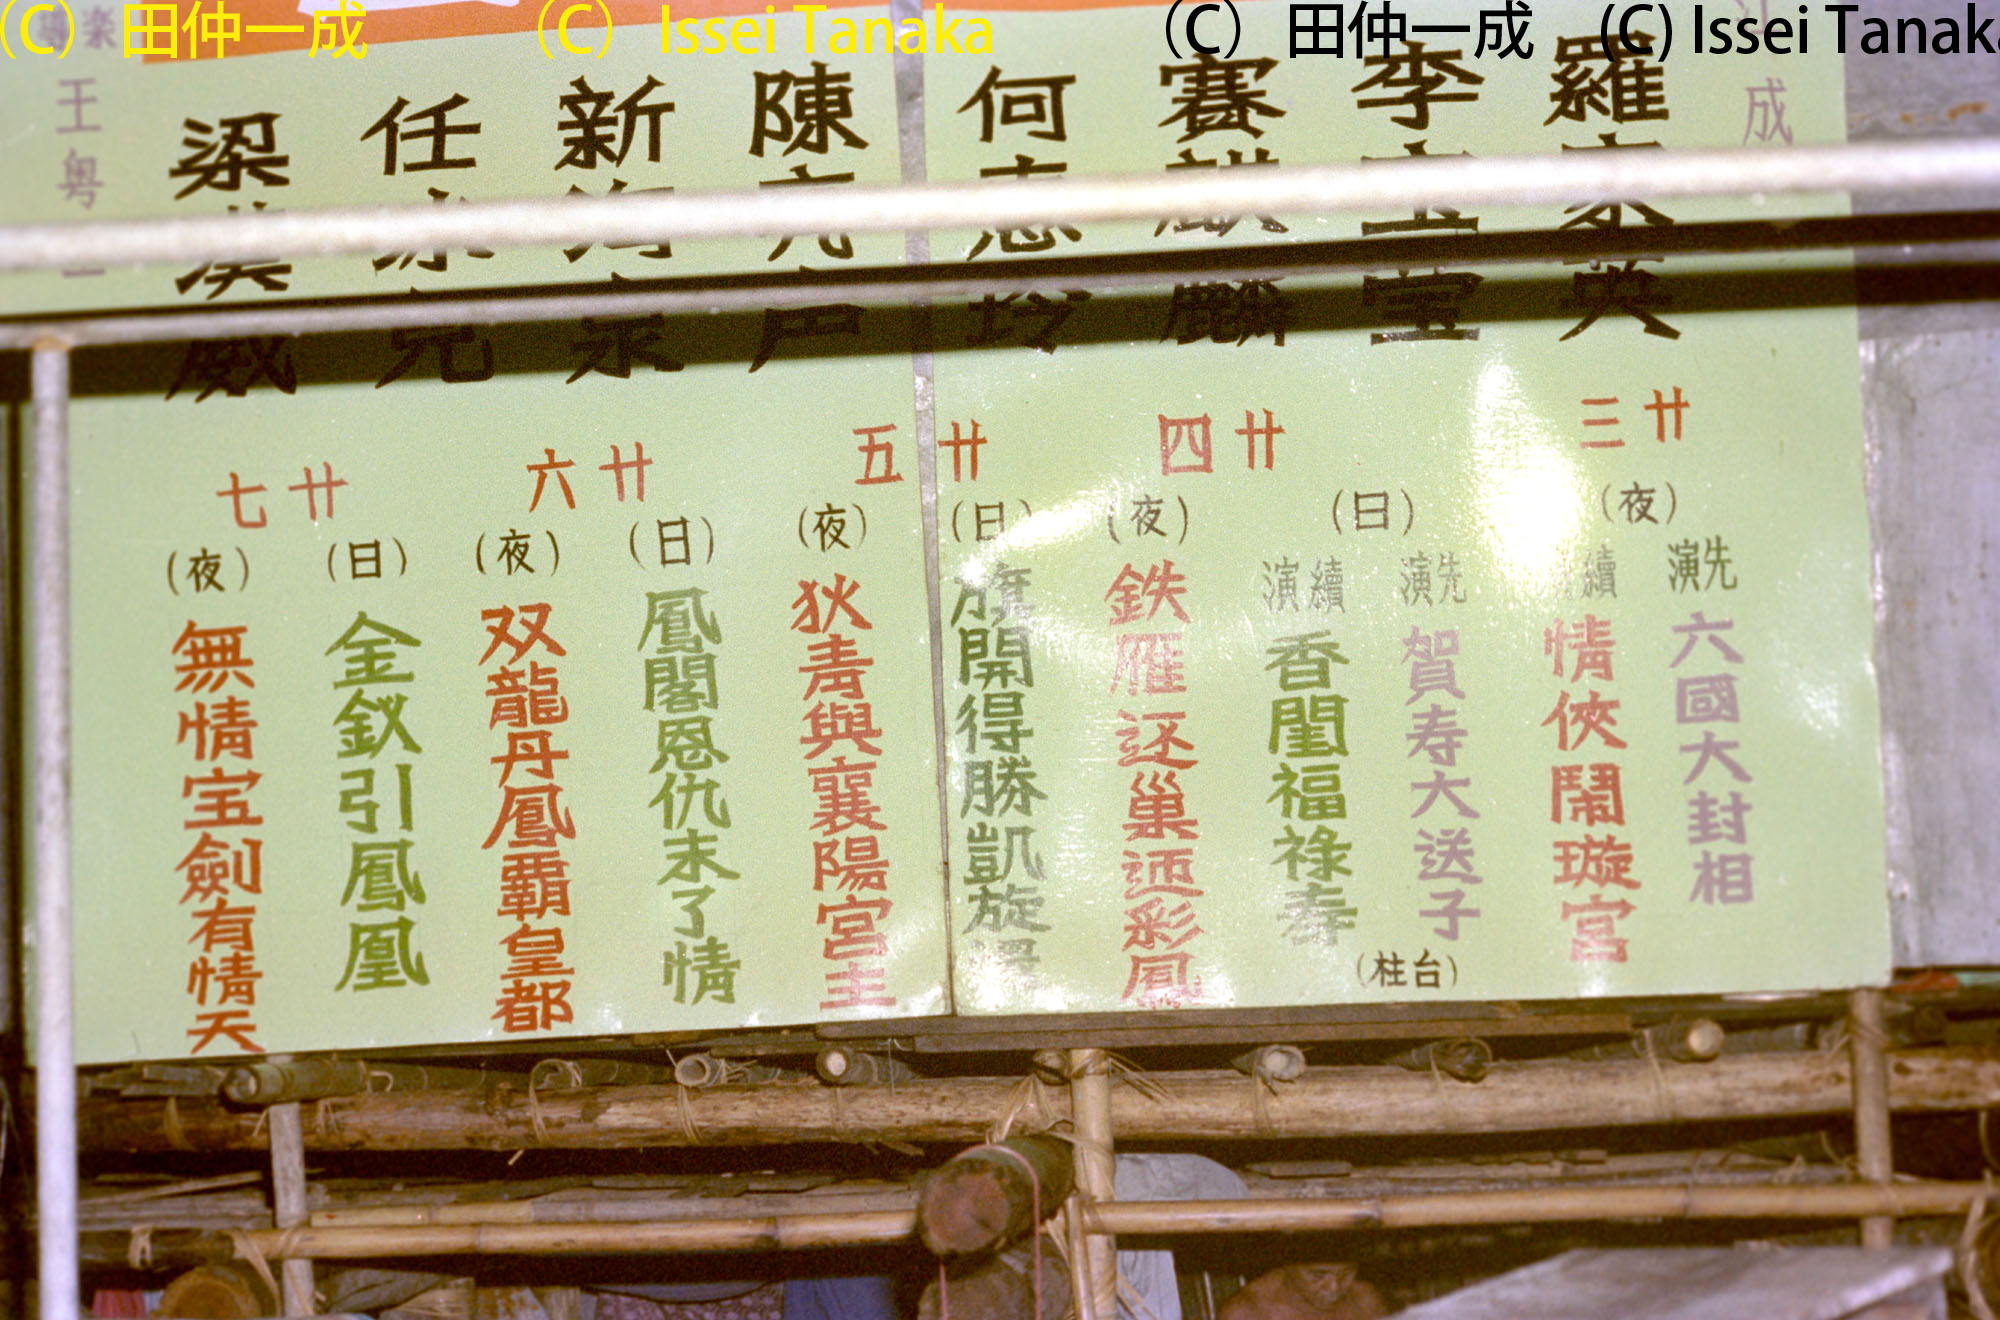 (C) 田仲一成
(C) Issei Tanaka
(C) 田仲一成
(C) Issei Tanaka
成
羅家英
李宝莹
賽麒麟
何志玲
陳
新海泉
任冰兒
梁漢威
王粤
音楽
廿三
(夜)
先演
六國大封相
續
情俠鬧璇宮
廿四
(日)
先演
賀寿大送子
(台柱)
續演
香閨福祿寿
(夜)
鉄雁还巢迊彩鳳
廿五
(日)
旗開得勝凱旋還
(夜)
狄青與襄陽宮主
廿六
(日)
鳳閣恩仇未了情
(夜)
双龍丹鳳覇皇都
廿七
(日)
金釵引鳳凰
(夜)
無情宝劍有情天